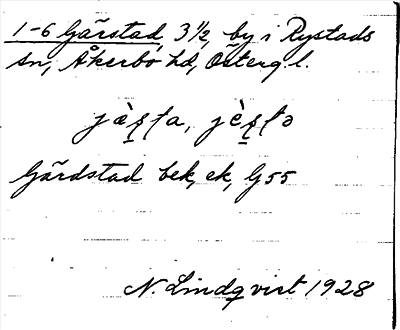 1-6 Gärstad, 3 1/2, by i Rystads
sn, Åkerbo hd, Östergl.
jæ̀ʂʈa, jèʂʈə
Gärdstad bek, ek, G55
N. Lindqvist 1928